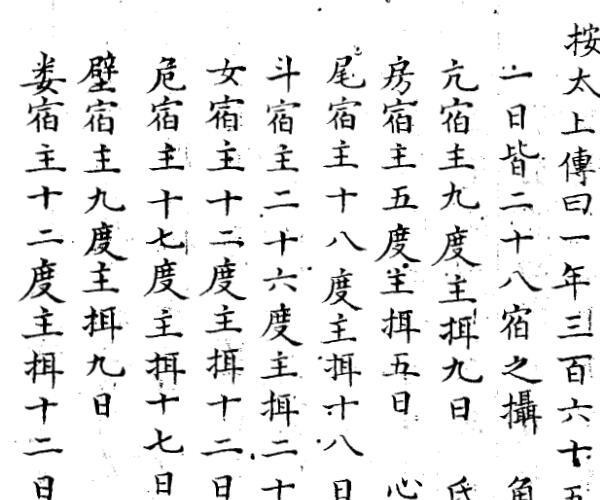 按太上傳曰一年三百六十五
一日皆二十八宿之攝 角
亢宿主九度主捐九日 氐
房宿主五度主捐五日 心
尾宿主十八度主捐十八日
斗宿主二十六度主捐二十
女宿主十二度主捐十二日
危宿主十七度主捐十七日
壁宿主九度主捐九日
娄宿主十二度主捐十二日